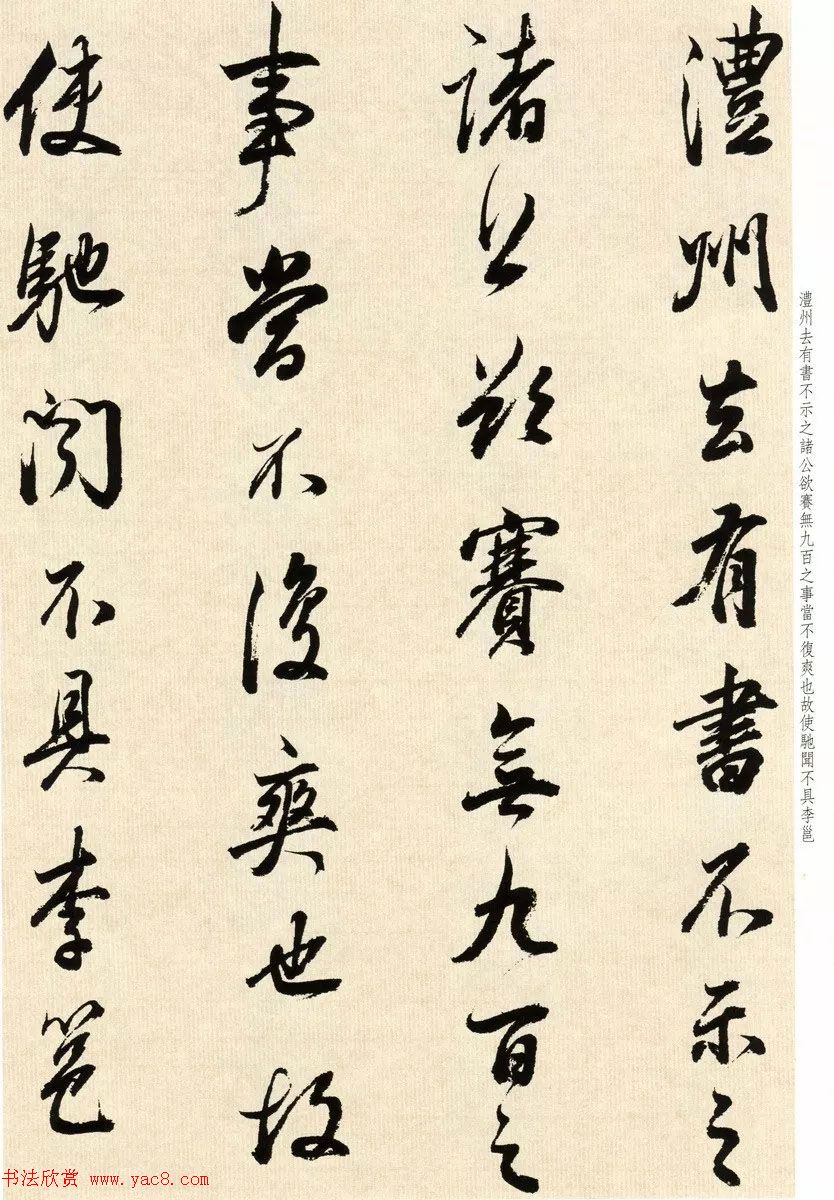 澧州去有書不示之
諸公欲賽無九百之
事當不復爽也故
使馳聞不具李邕
澧州去有書不示之諸公欲賽無九百之事當不復爽也故使馳聞不具李邕
书法欣赏 www.yac8.com